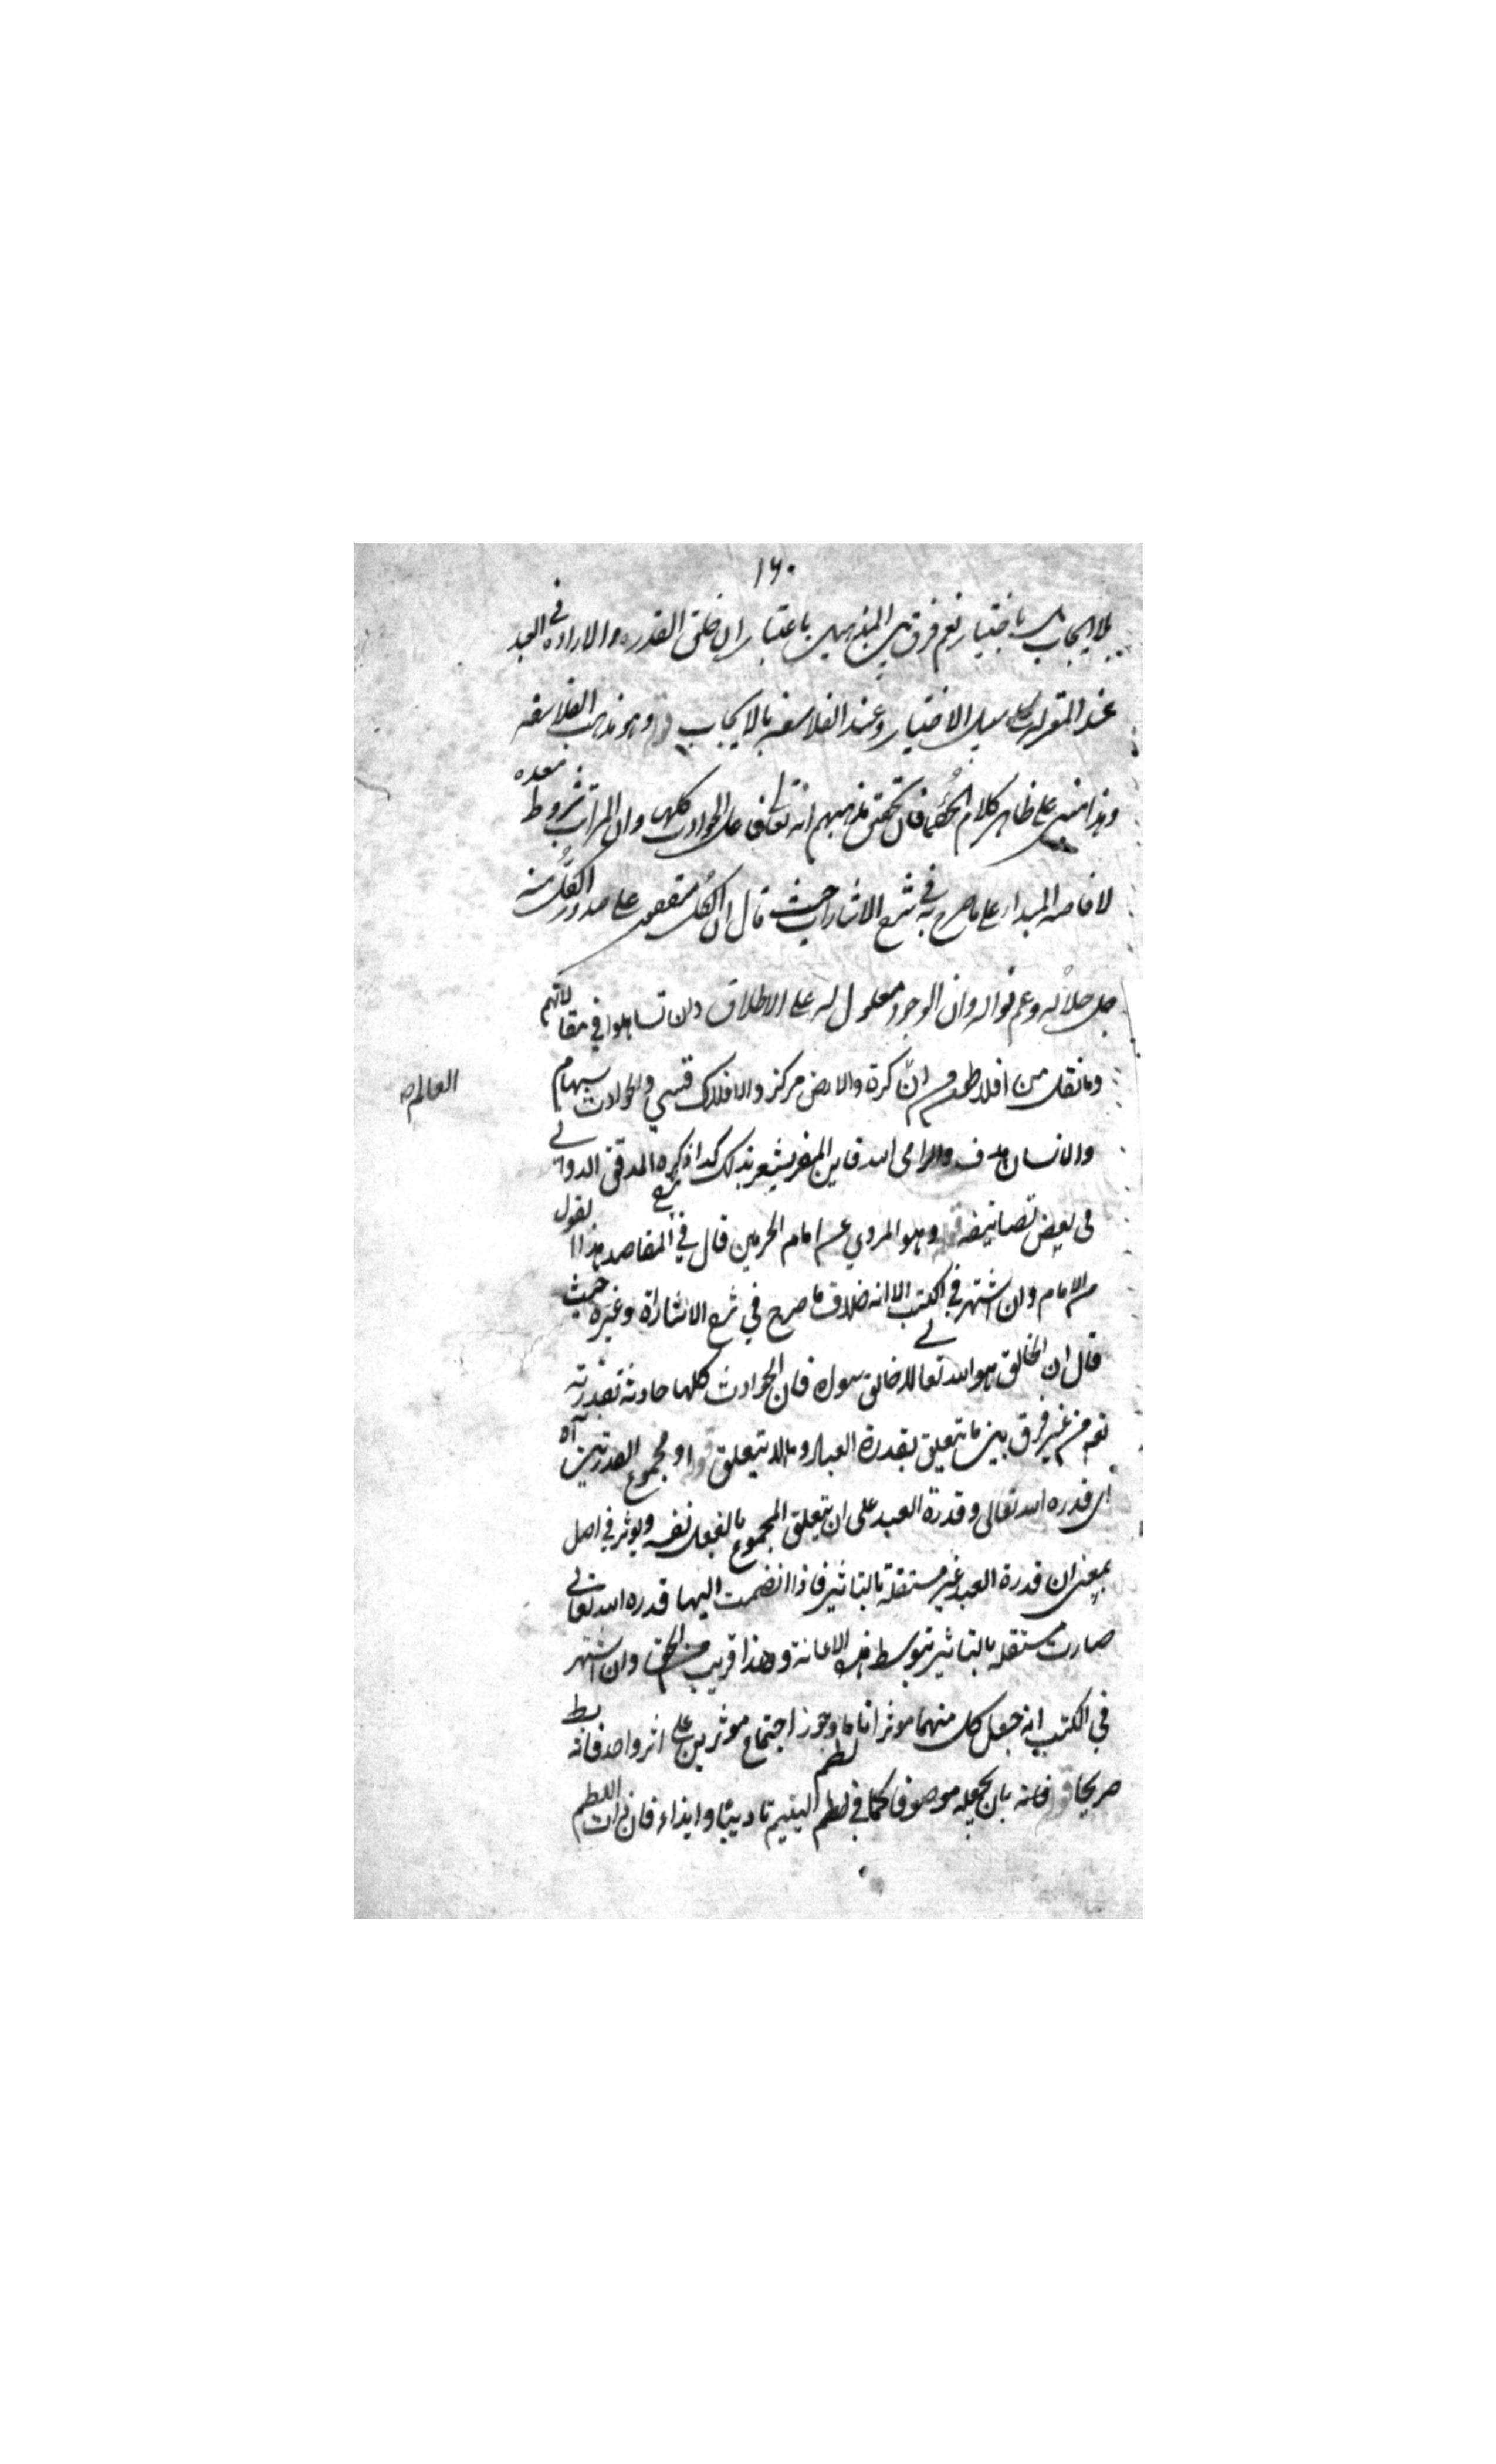 ١٦٠
بلا ايجاب بل باختيار نعم فرق بين المذهبين باعتبار ان خلق القدره والارادة في العبد
عند المعتزلة على سبيل الاختيار وعند الفلاسفه بالايجاب قوله وهو مذهب الفلاسفه
وهذا مبني على ظاهر كلام الحكماء فان تحقيق مذهبهم انه تعالى فاعل الحوادث كلها وان المراتب شروط معده
لافاضه المبداء على ما صرح به في شرح الاشارات حيث قال ان الكل متفقون على صدور الكل منه
جل جلاله وعم نواله وان الوجود معلول له على الاطلاق وان تساهلوا في مقالاتهم
وما نقل من افلاطون من ان كرة والارض مركز والافلاك قسي والحوادث سهام
العالم صح
والانسان هدف والرامي الله فاين المفر يشعر بذلك كذا ذكره المدقق الدواني
في بعض تصانيفه قوله وهو المروي عن امام الحرمين قال في شرح المقاصد هذا القول
من الامام وان اشتهر في الكتب الا انه خلاف ما صرح في شرح الاشارة وغيره حيث
قال ان الخالق هو الله تعالى لا خالق سواه فان الحوادث كلها حادثة بقدرته
نعم من غير فرق بين ما يتعلق بقدرة العباد وما لا يتعلق قوله او مجموع القدرتين آه
اى قدره الله تعالى وقدرة العبد على ان يتعلق المجموع بالفعل نفسه ويوثر في اصل
بمعنى ان قدرة العبد غير مستقلة بالتاثير فاذا انضمت اليها قدره الله تعالى
صارت مستقله بالتاثير بتوسط هذه الاعانة وهذا قريب من الحق وان اشتهر
في الكتب انه جعل كل منهما موثرا تاما وجوز اجتماع موثرين على اثر واحد فانه بط
صريحا قوله فانه بان يجعله موصوفا كما في لطم اليتيم تاديبا وايذاء فان ذات اللطم
لطم